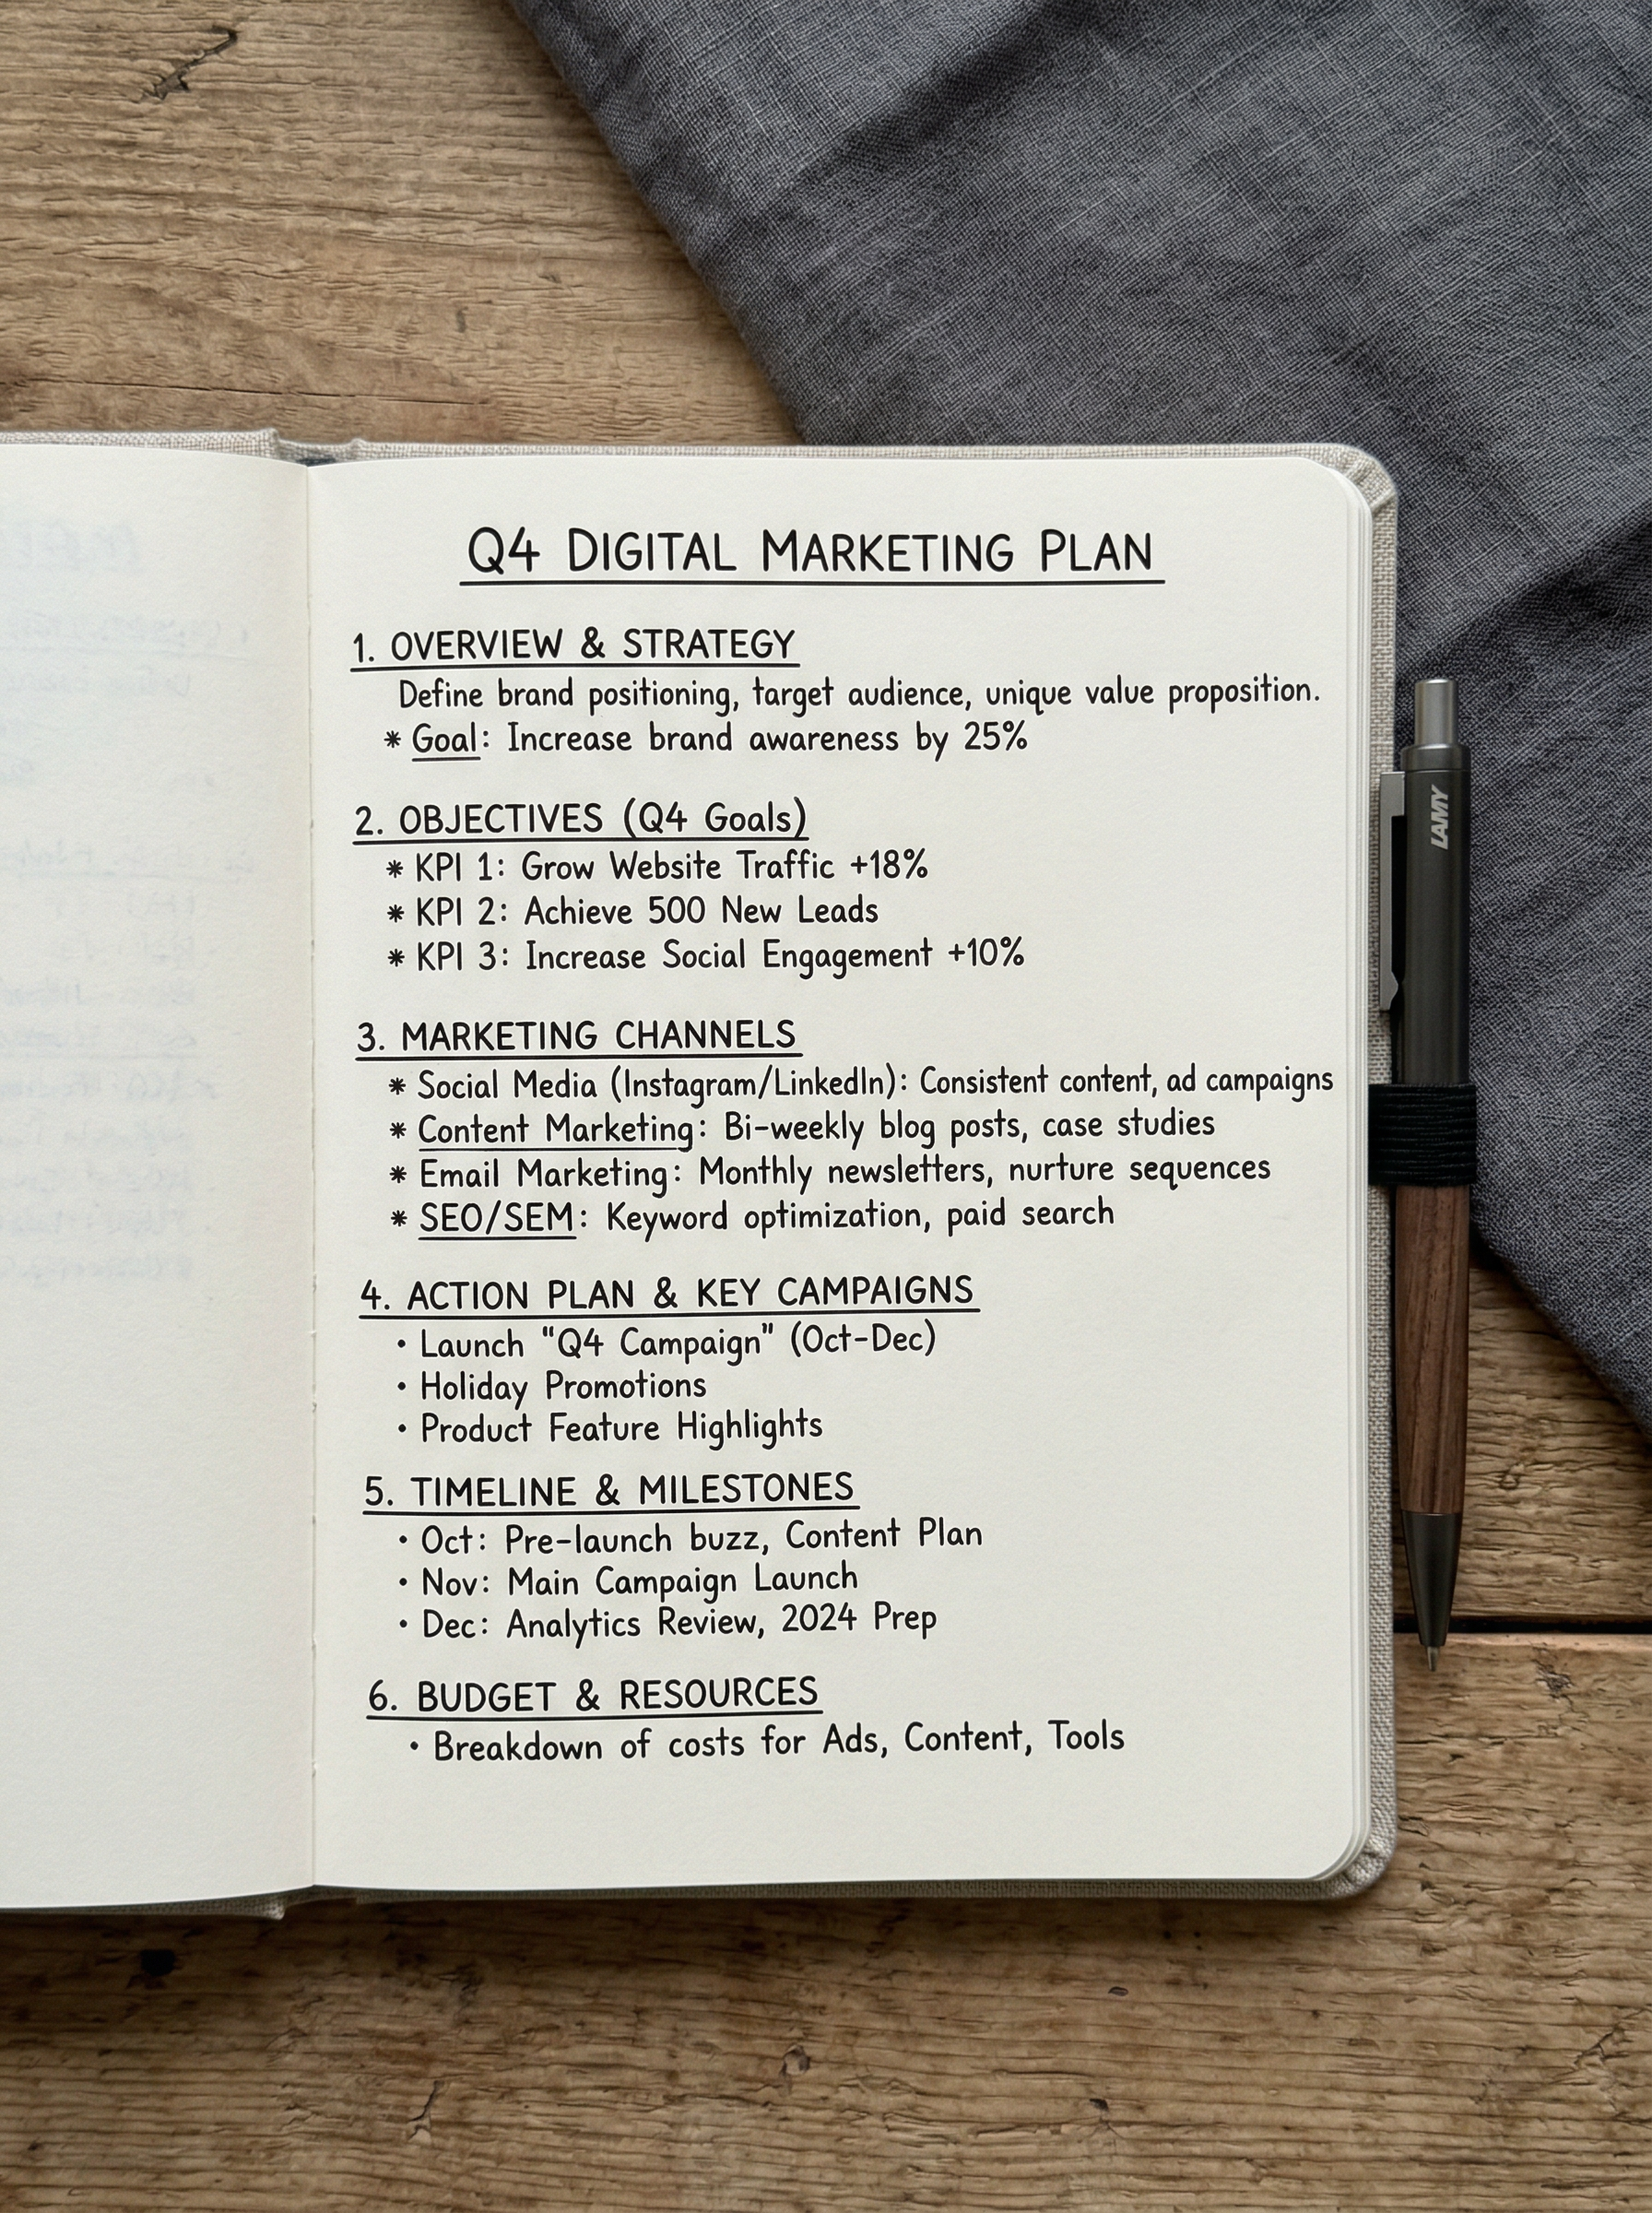 Q4 DIGITAL MARKETING PLAN
1. OVERVIEW & STRATEGY
Define brand positioning, target audience, unique value proposition.
* Goal: Increase brand awareness by 25%
2. OBJECTIVES (Q4 Goals)
* KPI 1: Grow Website Traffic +18%
* KPI 2: Achieve 500 New Leads
* KPI 3: Increase Social Engagement +10%
3. MARKETING CHANNELS
* Social Media (Instagram/LinkedIn): Consistent content, ad campaigns
* Content Marketing: Bi-weekly blog posts, case studies
* Email Marketing: Monthly newsletters, nurture sequences
* SEO/SEM: Keyword optimization, paid search
4. ACTION PLAN & KEY CAMPAIGNS
• Launch "Q4 Campaign" (Oct-Dec)
• Holiday Promotions
• Product Feature Highlights
5. TIMELINE & MILESTONES
• Oct: Pre-launch buzz, Content Plan
• Nov: Main Campaign Launch
• Dec: Analytics Review, 2024 Prep
6. BUDGET & RESOURCES
• Breakdown of costs for Ads, Content, Tools
LAMY